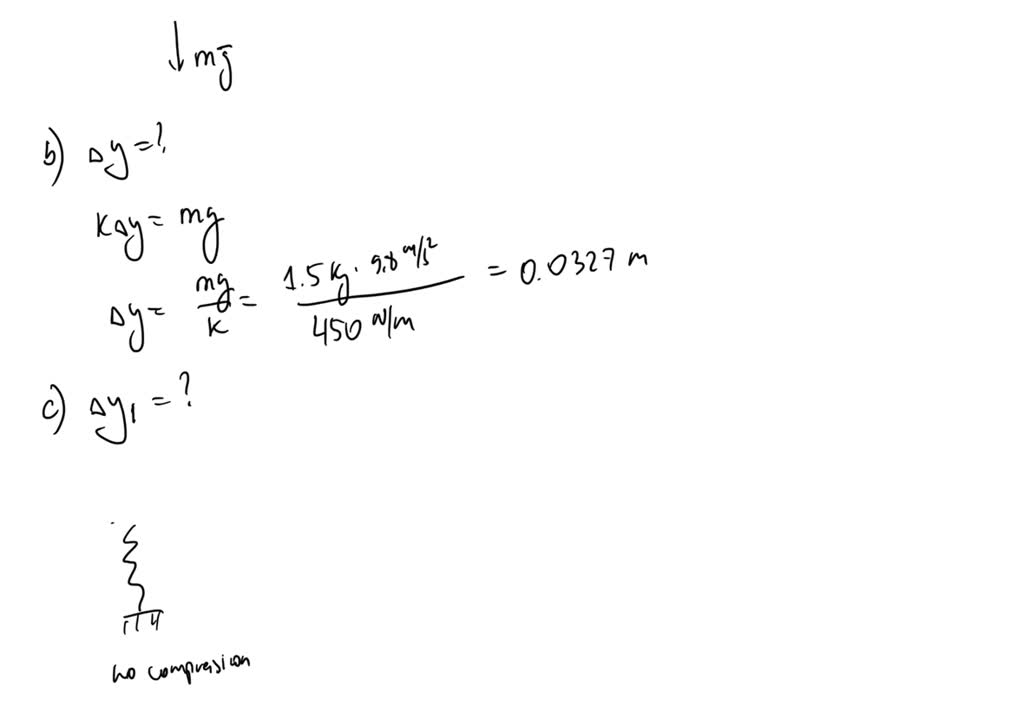 mg⃗
b) Δy = ?
KΔy = mg
Δy = mg/K = 1.5 kg · 9.8 m/s² / 450 N/m = 0.0327 m
c) Δy₁ = ?
no compression